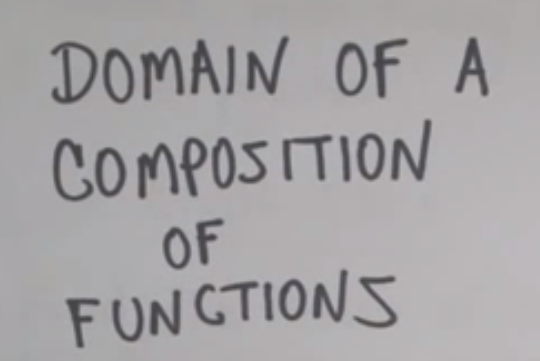 DOMAIN OF A
COMPOSITION
OF
FUNCTIONS